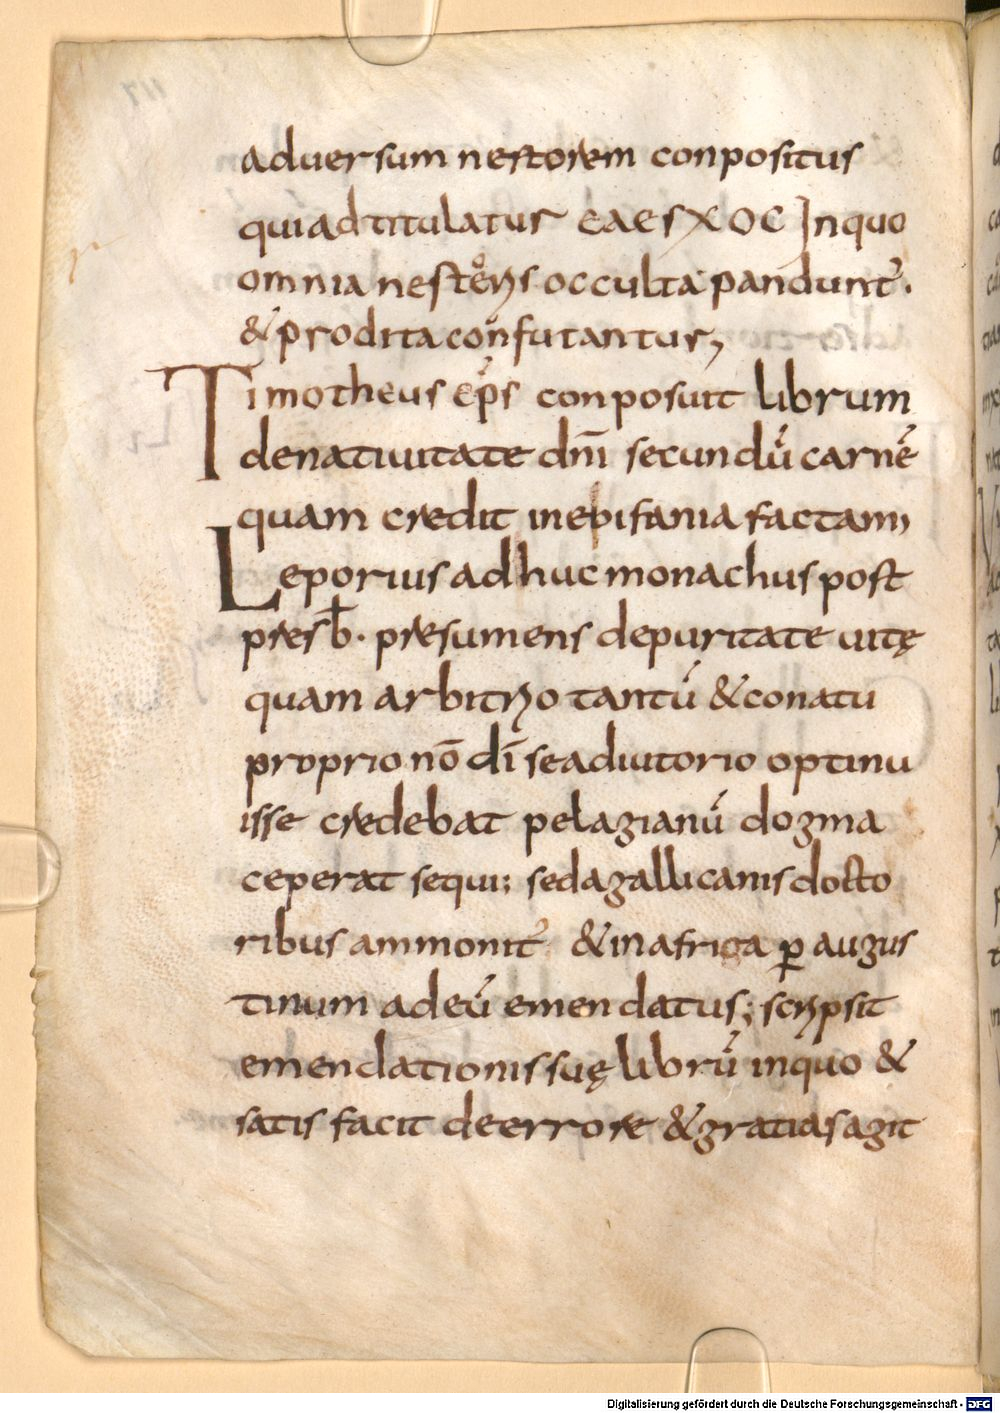 aduersum nestorem conpositus
qui adtitulatus EAESXOC In quo
omnia nestorys occulta pandunt̄.
& prodita confutantur;
Timotheus ep̄s conposuit librum
de natiuitate dn̄i secundū carnē
quam credit in epifania factam;
Leporius adhuc monachus post
presb̄. presumens de puritate uitę
quam arbitryo tantū & conatu
proprio nō dī se adiutorio optinu
isse credebat pelagianū dogma
ceperat sequi; sed a gallicanis docto
ribus ammonit̄ & in afriga ꝑ augus
tinum adeū emendatus; scrypsit
emendationis suę librū in quo &
satis facit de errore & gratias agit
Digitalisierung gefördert durch die Deutsche Forschungsgemeinschaft - DFG